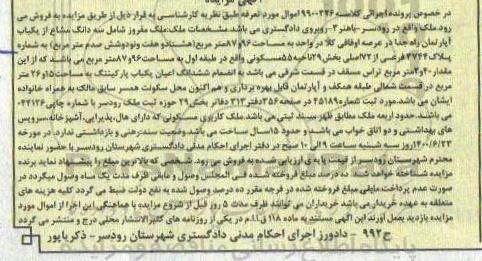 در خصوص پرونده اجرائی کلاسه ۹۹۰۰۳۲۶ اموال مورد تعرفه طبق نظریه کارشناسی به قرار ذیل از طریق مزایده به فروش می
رود. ملک واقع در رودسر - باهنر۳- روبروی دادگستری می باشد. مشخصات ملک: ملک مفروز شامل سه دانگ مشاع از یکباب
آپارتمان راه جدا در عرصه اوقافی کلا در واحد به مساحت ۸۷/۹۶ مترمربع (هشتادو هفت و نودوشش صدم متر مربع) به شماره
پلاک ۳۷۶۴ فرعی از ۷۲ اصلی بخش ۲۹ ناحیه ۵۵ مسکونی واقع در طبقه اول به مساحت ۸۷/۹۶ متر مربع می باشد که از این
مقدار ۲/۴۰ متر مربع تراس مسقف در قسمت شرقی می باشد به انضمام ششدانگ اعیان یکباب پارکینگ به مساحت ۲۶/۱۵ متر
مربع در قسمت شمالی طبقه همکف و آپارتمان قابل بهره برداری و هم اکنون محل سکونت همسر سابق مالک به همراه خانواده
ایشان می باشد. مورد ثبت شماره ۲۵۱۸۹ در صفحه ۳۵۶ دفتر ۳۱۲ دفاتر بخش ۲۹ حوزه ثبت ملک رودسر با شماره چاپی ۰۴۳۱۲۶
می باشد. حدود اربعه ملک مطابق ظهر سند ثبتی می باشد. ملک کاربری مسکونی که دارای هال، پذیرایی، آشپزخانه، سرویس
های بهداشتی و دو اتاق خواب می باشد و حدود ۱۵ سال ساخت می باشد. وضعیت سند رهنی و بازداشتی ندارد. در مورخه
۱۴۰۰/۶/۲۳ روز سه شنبه ساعت ۹ الی ۱۰ صبح در دفتر اجرای احکام مدنی دادگستری شهرستان رودسر با حضور نماینده
محترم شهرستان رودسر از قیمت پایه ی ارزیابی شده به فروش می رود. شخصی که بالاترین مبلغ را پیشنهاد نماید برنده
مزایده شناخته خواهد شد. ده درصد مبلغ فروخته شده فی المجلس وصول و مابقی ظرف مدت یک ماه وصول میگردد در
صورت عدم پرداخت مابقی مبلغ فروخته شده در فرجه مقرر ده درصد وصول شده به نفع دولت ضبط می گردد کلیه هزینه های
متعلقه به عهده خریدار می باشد خریداران می توانند ظرف مدت ۵ روز قبل از شروع مزایده با هماهنگی این اجرا از اموال مورد
مزایده بازدید بعمل آورند این آگهی مستندا به ماده ۱۱۸ ق.ا.م در یکی از روزنامه های کثیرالانتشار محلی درج و منتشر می گردد
ج ۹۹۲ - دادورز اجرای احکام مدنی دادگستری شهرستان رودسر - ذکریاپور